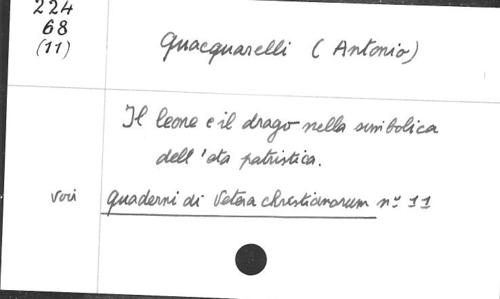 224
68
(11)
Quacquarelli (Antonio)
Il leone e il drago nella simbolica
dell'eta patristica.
voir Quaderni di Vetera christianorum nº 11